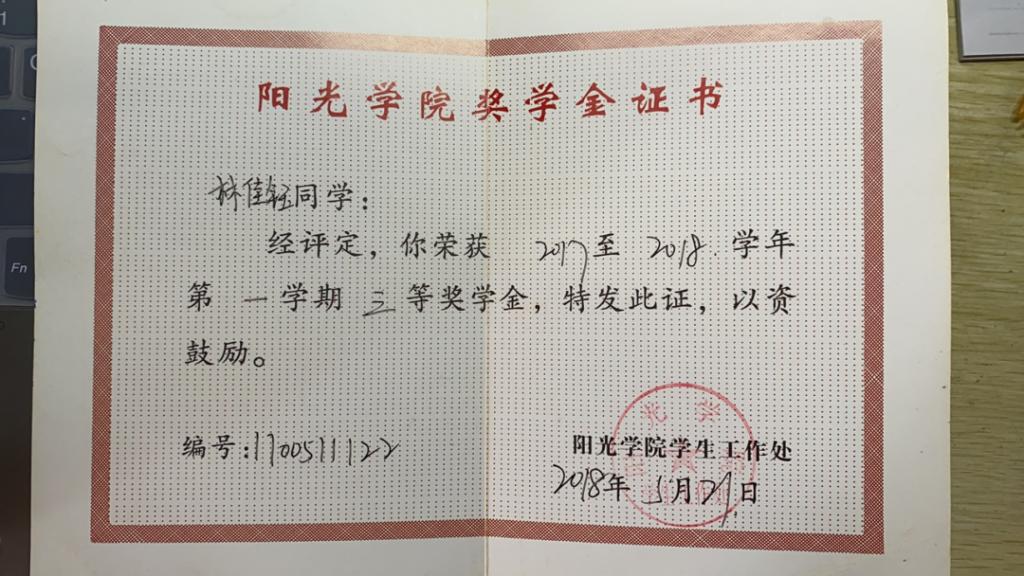 阳光学院奖学金证书
林佳钰同学：
经评定，你荣获 2017至 2018.学年
第 一学期 三等奖学金，特发此证，以资
鼓励。
编号：1700511122
阳光学院学生工作处
2018年 5月29日
Fn